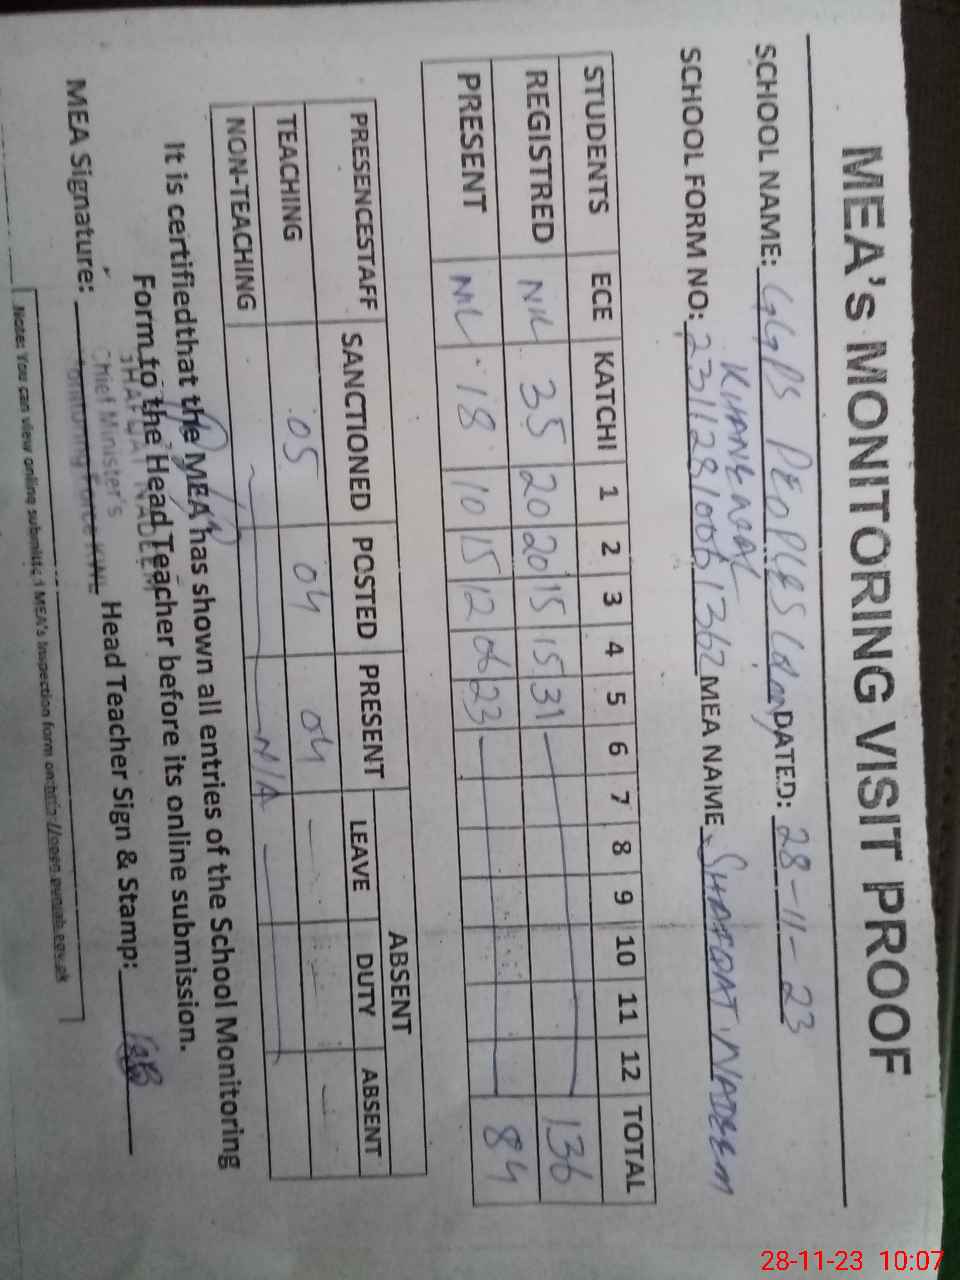 MEA's MONITORING VISIT PROOF
SCHOOL NAME: GGPS PEOPLES DATED: 28-11-23
KHANEWAL
SCHOOL FORM NO: 23112810061362 MEA NAME SHAFQAT NADEEM
STUDENTS ECE KATCHI 1 2 3 4 5 6 7 8 9 10 11 12 TOTAL
REGISTRED NIL 35 20 20 15 15 31 — 136
PRESENT NIL 18 10 15 12 06 23 — 84
PRESENCESTAFF SANCTIONED POSTED PRESENT ABSENT
LEAVE DUTY ABSENT
TEACHING 05 04 04 — —
NON-TEACHING — N/A —
It is certifiedthat the MEA has shown all entries of the School Monitoring
Form to the Head Teacher before its online submission.
SHAFQAT NADEEM
Chief Minister's
Monitoring Force KWL
MEA Signature: Head Teacher Sign & Stamp:
Note: You can view online submitted MEA's Inspection form on:http://open.punjab.gov.pk
28-11-23 10:07